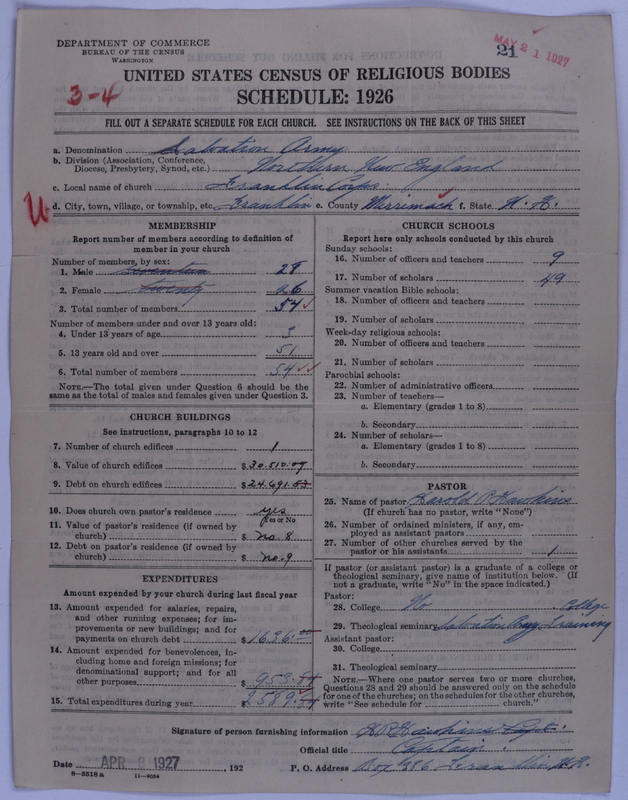 DEPARTMENT OF COMMERCE
BUREAU OF THE CENSUS
WASHINGTON
21
MAY 21 1927
UNITED STATES CENSUS OF RELIGIOUS BODIES
3-4
SCHEDULE: 1926
FILL OUT A SEPARATE SCHEDULE FOR EACH CHURCH. SEE INSTRUCTIONS ON THE BACK OF THIS SHEET
a. Denomination Salvation Army
b. Division (Association, Conference, Diocese, Presbytery, Synod, etc.) Northern New England
c. Local name of church Franklin Corps.
d. City, town, village, or township, etc. Franklin e. County Merrimack f. State N. H.
MEMBERSHIP
Report number of members according to definition of member in your church
Number of members, by sex:
1. Male seventeen 28
2. Female twenty 26
3. Total number of members 54
Number of members under and over 13 years old:
4. Under 13 years of age 3
5. 13 years old and over 51
6. Total number of members 54
NOTE.—The total given under Question 6 should be the same as the total of males and females given under Question 3.
CHURCH BUILDINGS
See instructions, paragraphs 10 to 12
7. Number of church edifices 1
8. Value of church edifices $30.510.09
9. Debt on church edifices $24.691.53
10. Does church own pastor's residence yes
Yes or No
11. Value of pastor's residence (if owned by church) $ no. 8
12. Debt on pastor's residence (if owned by church) $ no. 9
EXPENDITURES
Amount expended by your church during last fiscal year
13. Amount expended for salaries, repairs, and other running expenses; for improvements or new buildings; and for payments on church debt $1636.00
14. Amount expended for benevolences, including home and foreign missions; for denominational support; and for all other purposes $953.54
15. Total expenditures during year $2589.54
CHURCH SCHOOLS
Report here only schools conducted by this church
Sunday schools:
16. Number of officers and teachers 9
17. Number of scholars 49
Summer vacation Bible schools:
18. Number of officers and teachers
19. Number of scholars
Week-day religious schools:
20. Number of officers and teachers
21. Number of scholars
Parochial schools:
22. Number of administrative officers
23. Number of teachers—
a. Elementary (grades 1 to 8)
b. Secondary
24. Number of scholars—
a. Elementary (grades 1 to 8)
b. Secondary
PASTOR
25. Name of pastor Harold P. Hawkins
(If church has no pastor, write "None")
26. Number of ordained ministers, if any, employed as assistant pastors
27. Number of other churches served by the pastor or his assistants 1
If pastor (or assistant pastor) is a graduate of a college or theological seminary, give name of institution below. (If not a graduate, write "No" in the space indicated.)
Pastor:
28. College No
29. Theological seminary Salvation Army Training College
Assistant pastor:
30. College
31. Theological seminary
NOTE.—Where one pastor serves two or more churches, Questions 28 and 29 should be answered only on the schedule for one of the churches; on the schedules for the other churches, write "See schedule for church."
Signature of person furnishing information H.P. Hawkins Capt.
Official title Captain.
Date APR 8 1927, 192 P. O. Address Box 386 Franklin N.H.
8—5518a 11—9054